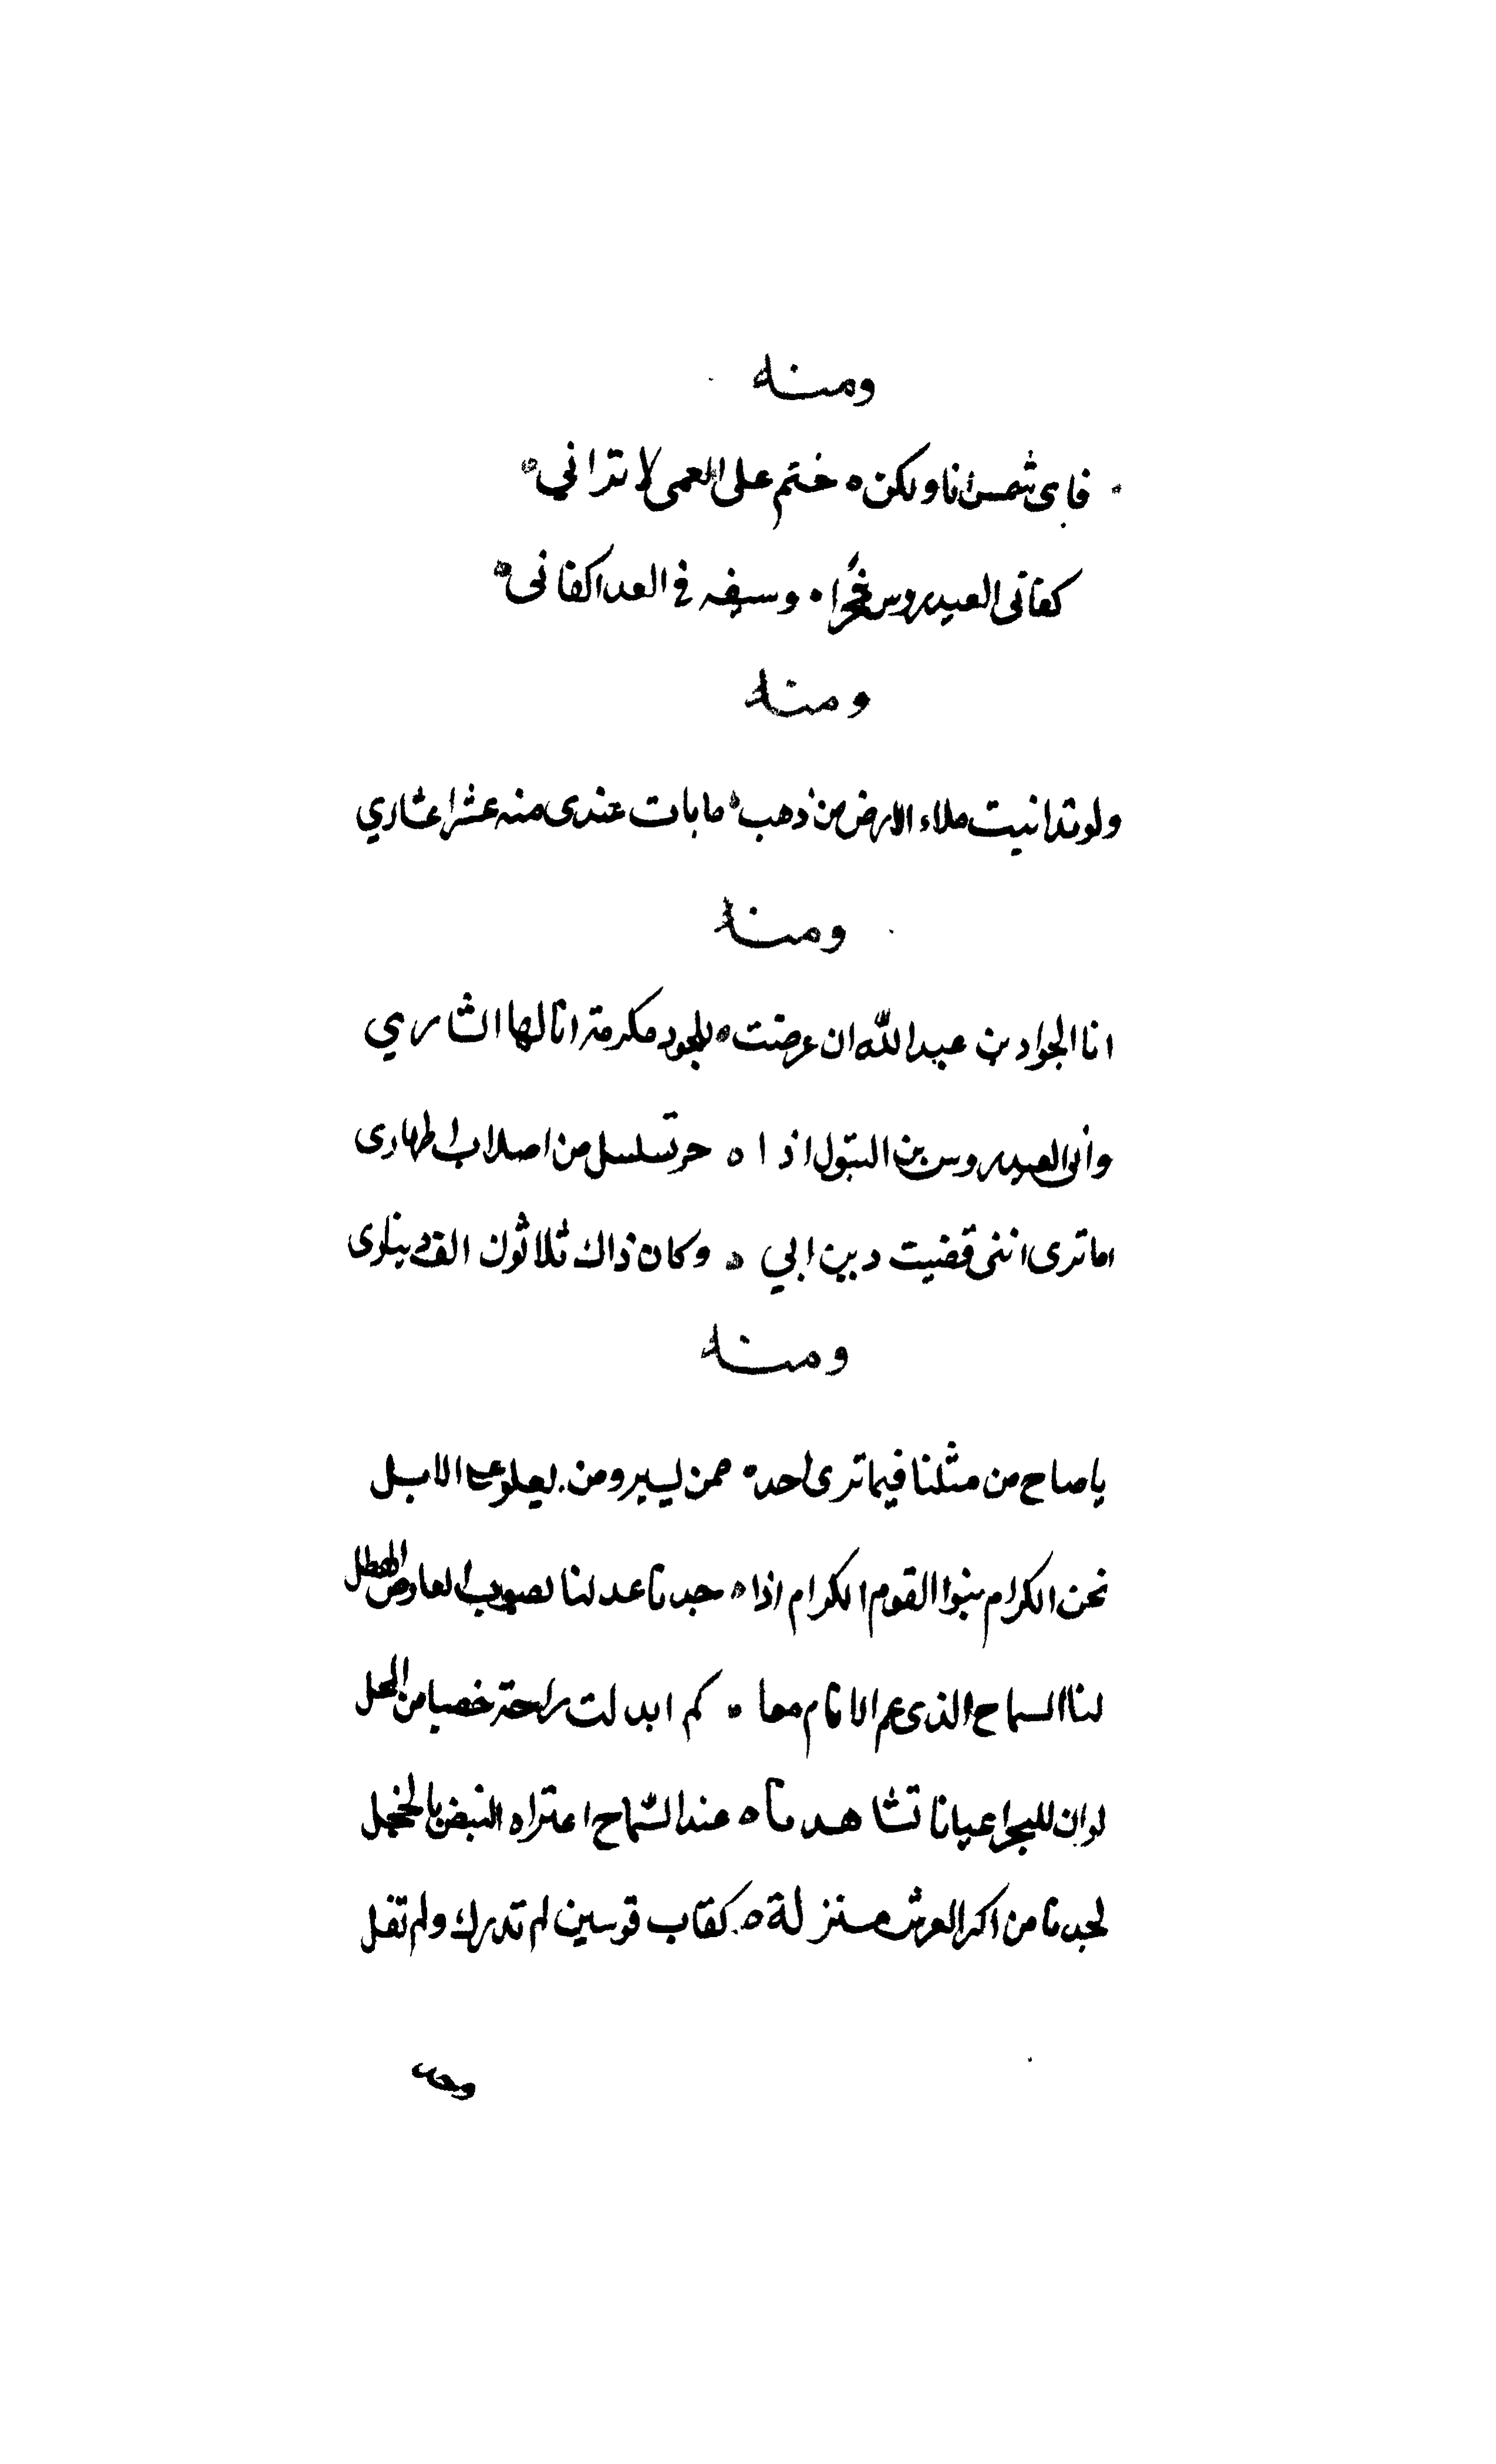 ومنه
فاى شمس انا ولكن ه ختم على العمى لا تراني ه
كفانى العيدروس فخرا ه وسيفه في العدا كفانى ه
ومنه
ولو تدانيت ملاء الارض من ذهب ه ما بات عندى منه عشر اعشاري
ومنه
انا الجواد بن عبد الله ان عرضت ه للجود مكرمة انا لها الشاري
وأبى العيدروس بن البتول اذا ه حر تسلسل من اصلاب اطهارى
اما ترى اننى قضيت دين ابي ه وكان ذاك ثلاثون الف دينارى
ومنه
يا صاح من مثلنا فيما ترى احد ه ممن يسير ومن يعلو على الابل
نحن الكرام بنوا القوم الكرام اذا ه جدنا عدلنا لصوب العارض الهطل
لنا السماح الذى عم الانام معا ه كم ابدلت راحة خصبا من المحل
لو ان للبحر اعيانا تشاهدنا ه عند السماح اعتراه النبض بالخجل
لجدنا من اكر العرش منزلة ه كقاب قوسين لم تدرك ولم تنل